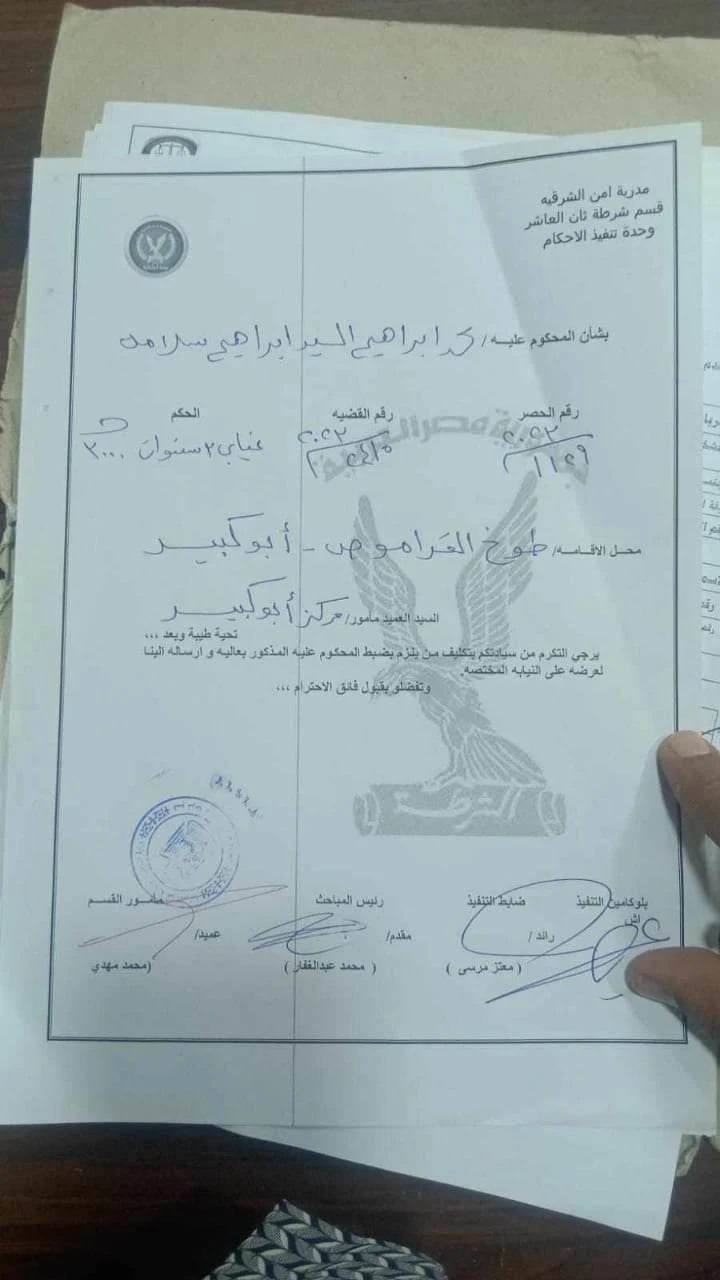 مدرية امن الشرقيه
قسم شرطة ثان العاشر
وحدة تنفيذ الاحكام
بشأن المحكوم عليه / محمد ابراهيم السيد ابراهيم سلامه
رقم الحصر رقم القضيه الحكم
١١٢٩ / ٢٠٢٣ ٢٠٢٣ غيابي ٣ سنوات
جمهورية مصر العربية
محل الاقامه/ طوخ القراموص - أبو كبير
السيد العميد مأمور/ مركز أبو كبير
تحية طيبة وبعد ،،،
يرجي التكرم من سيادتكم بتكليف من يلزم بضبط المحكوم عليه المذكور بعاليه و ارساله الينا
لعرضه على النيابه المختصه.
وتفضلو بقبول فائق الاحترام ،،،
الشرطة
بلوكامين التنفيذ ضابط التنفيذ رئيس المباحث مأمور القسم
رائد / مقدم/ عميد/
( معتز مرسى ) ( محمد عبدالغفار ) (محمد مهدي